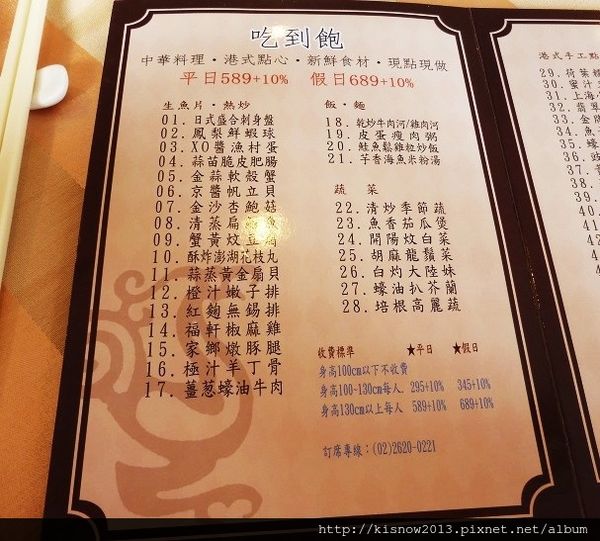 吃到飽
中華料理・港式點心・新鮮食材・現點現做
平日589+10% 假日689+10%
生魚片・熱炒
01.日式盛合刺身盤
02.鳳梨鮮蝦球
03.XO醬漁村蛋
04.蒜苗脆皮肥腸
05.金蒜軟殼蟹
06.京醬帆立貝
07.金沙杏鮑菇
08.清蒸扁鱈魚
09.蟹黃炆豆腐
10.酥炸澎湖花枝丸
11.蒜蒸黃金扇貝
12.橙汁嫩子排
13.紅麴無錫排
14.福軒椒麻雞
15.家鄉燉豚腿
16.極汁羊丁骨
17.薑蔥蠔油牛肉
飯・麵
18.乾炒牛肉河/雞肉河
19.皮蛋瘦肉粥
20.鮭魚鬆雞粒炒飯
21.芋香海魚米粉湯
蔬 菜
22.清炒季節蔬
23.魚香茄瓜煲
24.開陽炆白菜
25.胡麻龍鬚菜
26.白灼大陸妹
27.蠔油扒芥蘭
28.培根高麗蔬
收費標準 ★平日 ★假日
身高100cm以下不收費
身高100~130cm每人 295+10% 345+10%
身高130cm以上每人 589+10% 689+10%
訂席專線：(02)2620-0221
港式手工點
29.荷葉糯
30.蜜汁
31.上海
32.翡翠
33.金牌
34.
35.蠔
36.豉
37.
38.
39.
40.
41.
42.
http://kisnow2013.pixnet.net/album